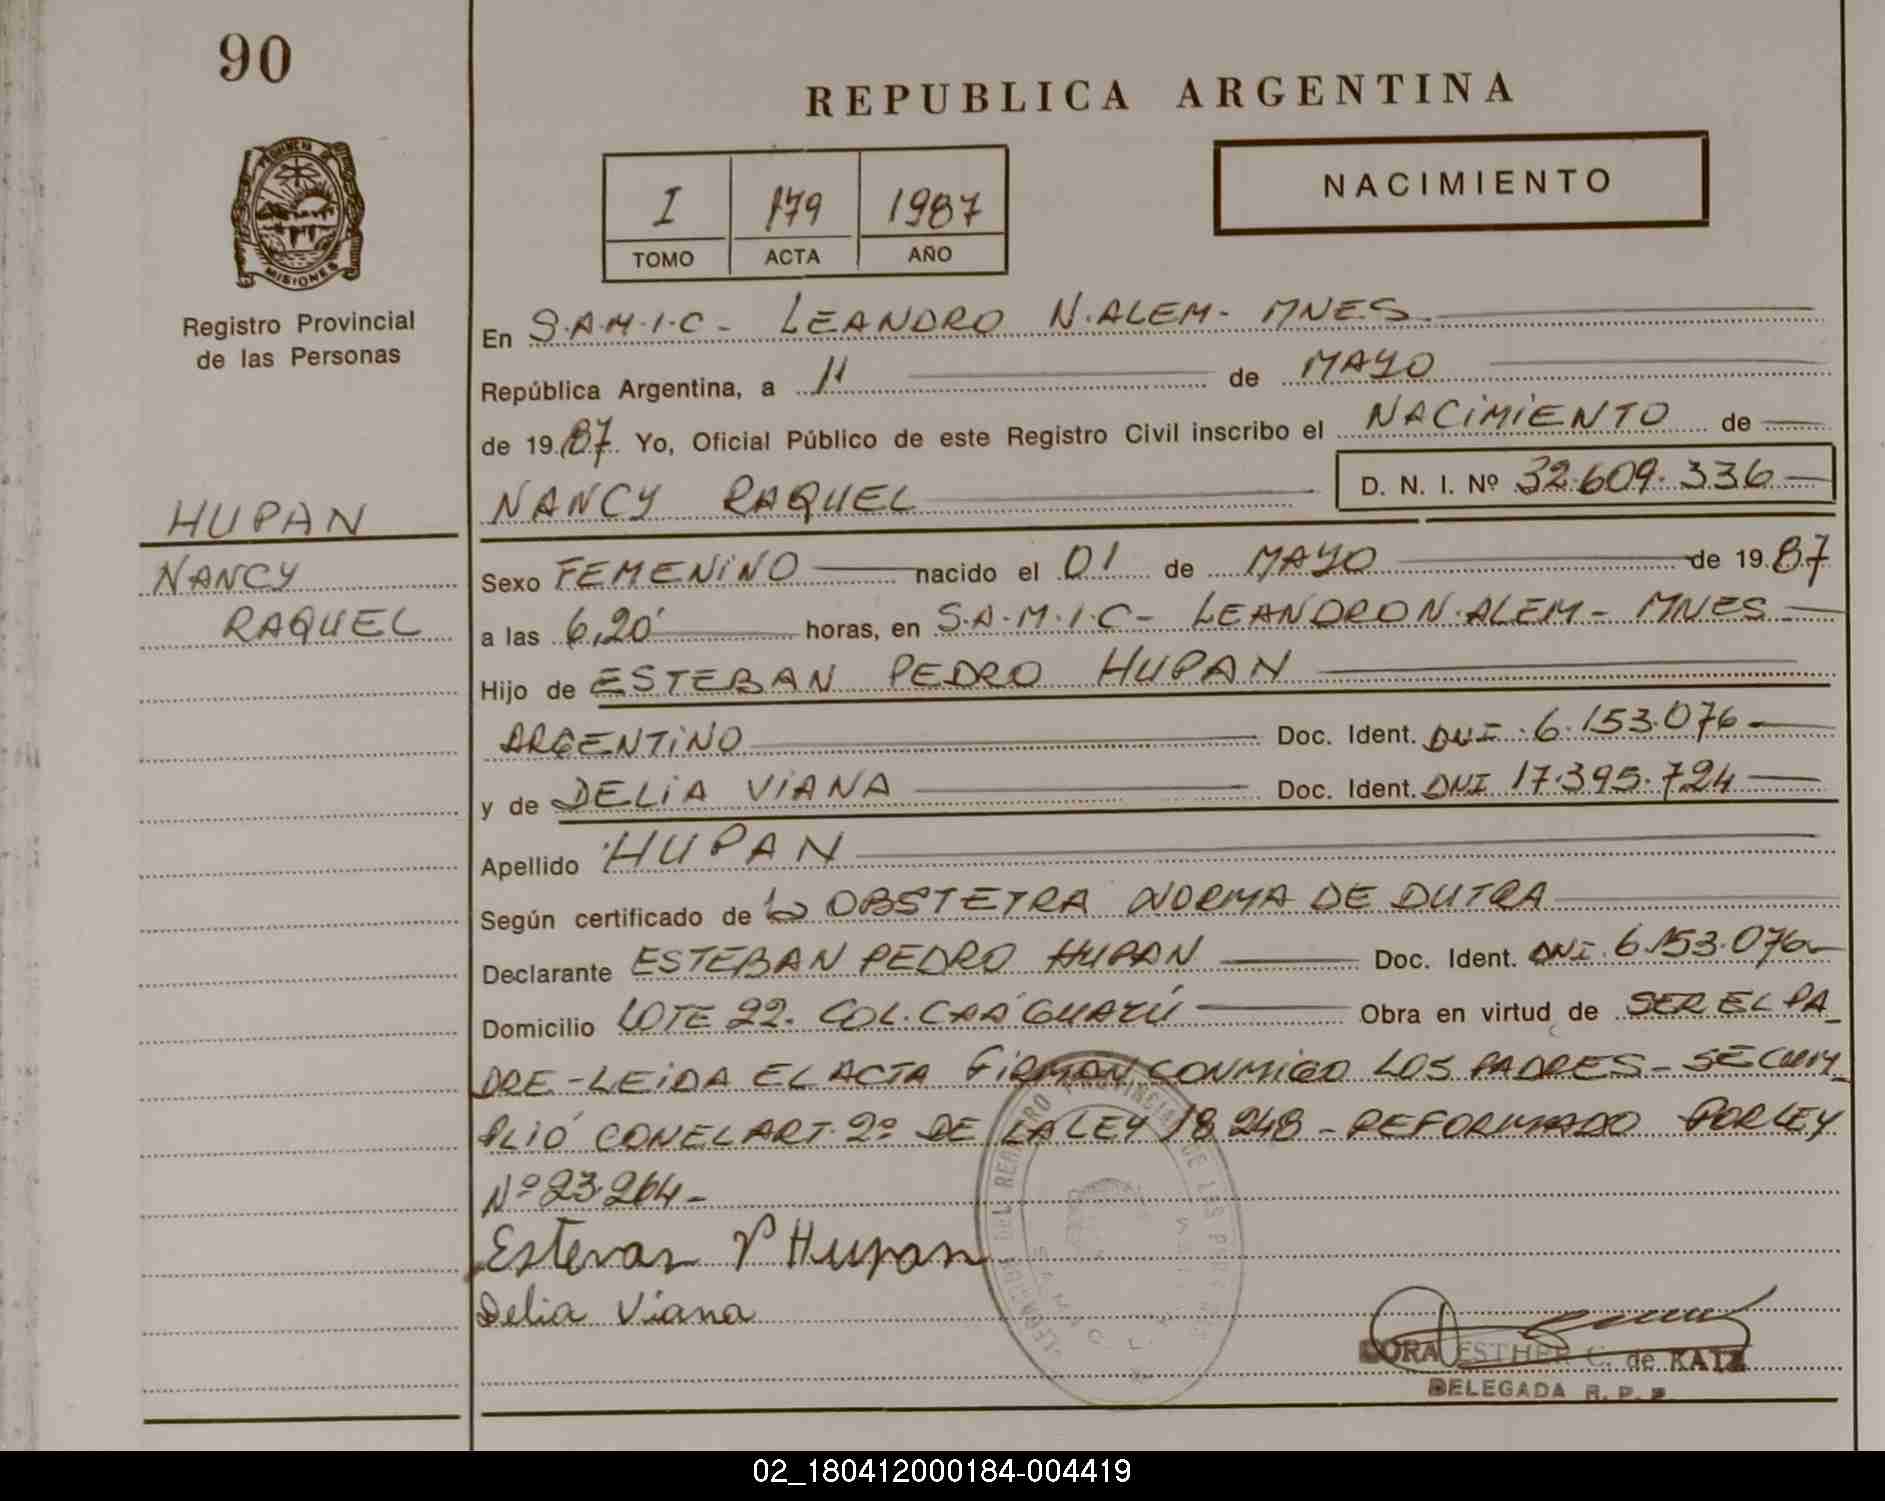 90
REPUBLICA ARGENTINA
PROVINCIA DE
MISIONES
Registro Provincial
de las Personas
I 179 1987
TOMO ACTA AÑO
NACIMIENTO
HUPAN
NANCY
RAQUEL
En S.A.M.I.C - LEANDRO N.ALEM - MNES
República Argentina, a 11 de MAYO
de 19 87. Yo, Oficial Público de este Registro Civil inscribo el NACIMIENTO de
NANCY RAQUEL D. N. I. Nº 32.609.336
Sexo FEMENINO nacido el 01 de MAYO de 19 87
a las 6,20 horas, en S.A.M.I.C - LEANDRO N.ALEM - MNES
Hijo de ESTEBAN PEDRO HUPAN
ARGENTINO Doc. Ident. DNI 6.153.076
y de DELIA VIANA Doc. Ident. DNI 17.395.724
Apellido HUPAN
Según certificado de la OBSTETRA NORMA DE DUTRA
Declarante ESTEBAN PEDRO HUPAN Doc. Ident. DNI 6.153.076
Domicilio LOTE 22. COL. CAA GUAZÚ Obra en virtud de SER EL PA
DRE - LEIDA EL ACTA FIRMAN CONMIGO LOS PADRES - SE CUM
PLIÓ CON EL ART. 2º DE LA LEY 18.248 - REFORMADO POR LEY
Nº 23.264 -
Estevan P Hupan
Delia Viana
DORA ESTHER C. de KATZ
DELEGADA R. P. P.
02_180412000184-004419